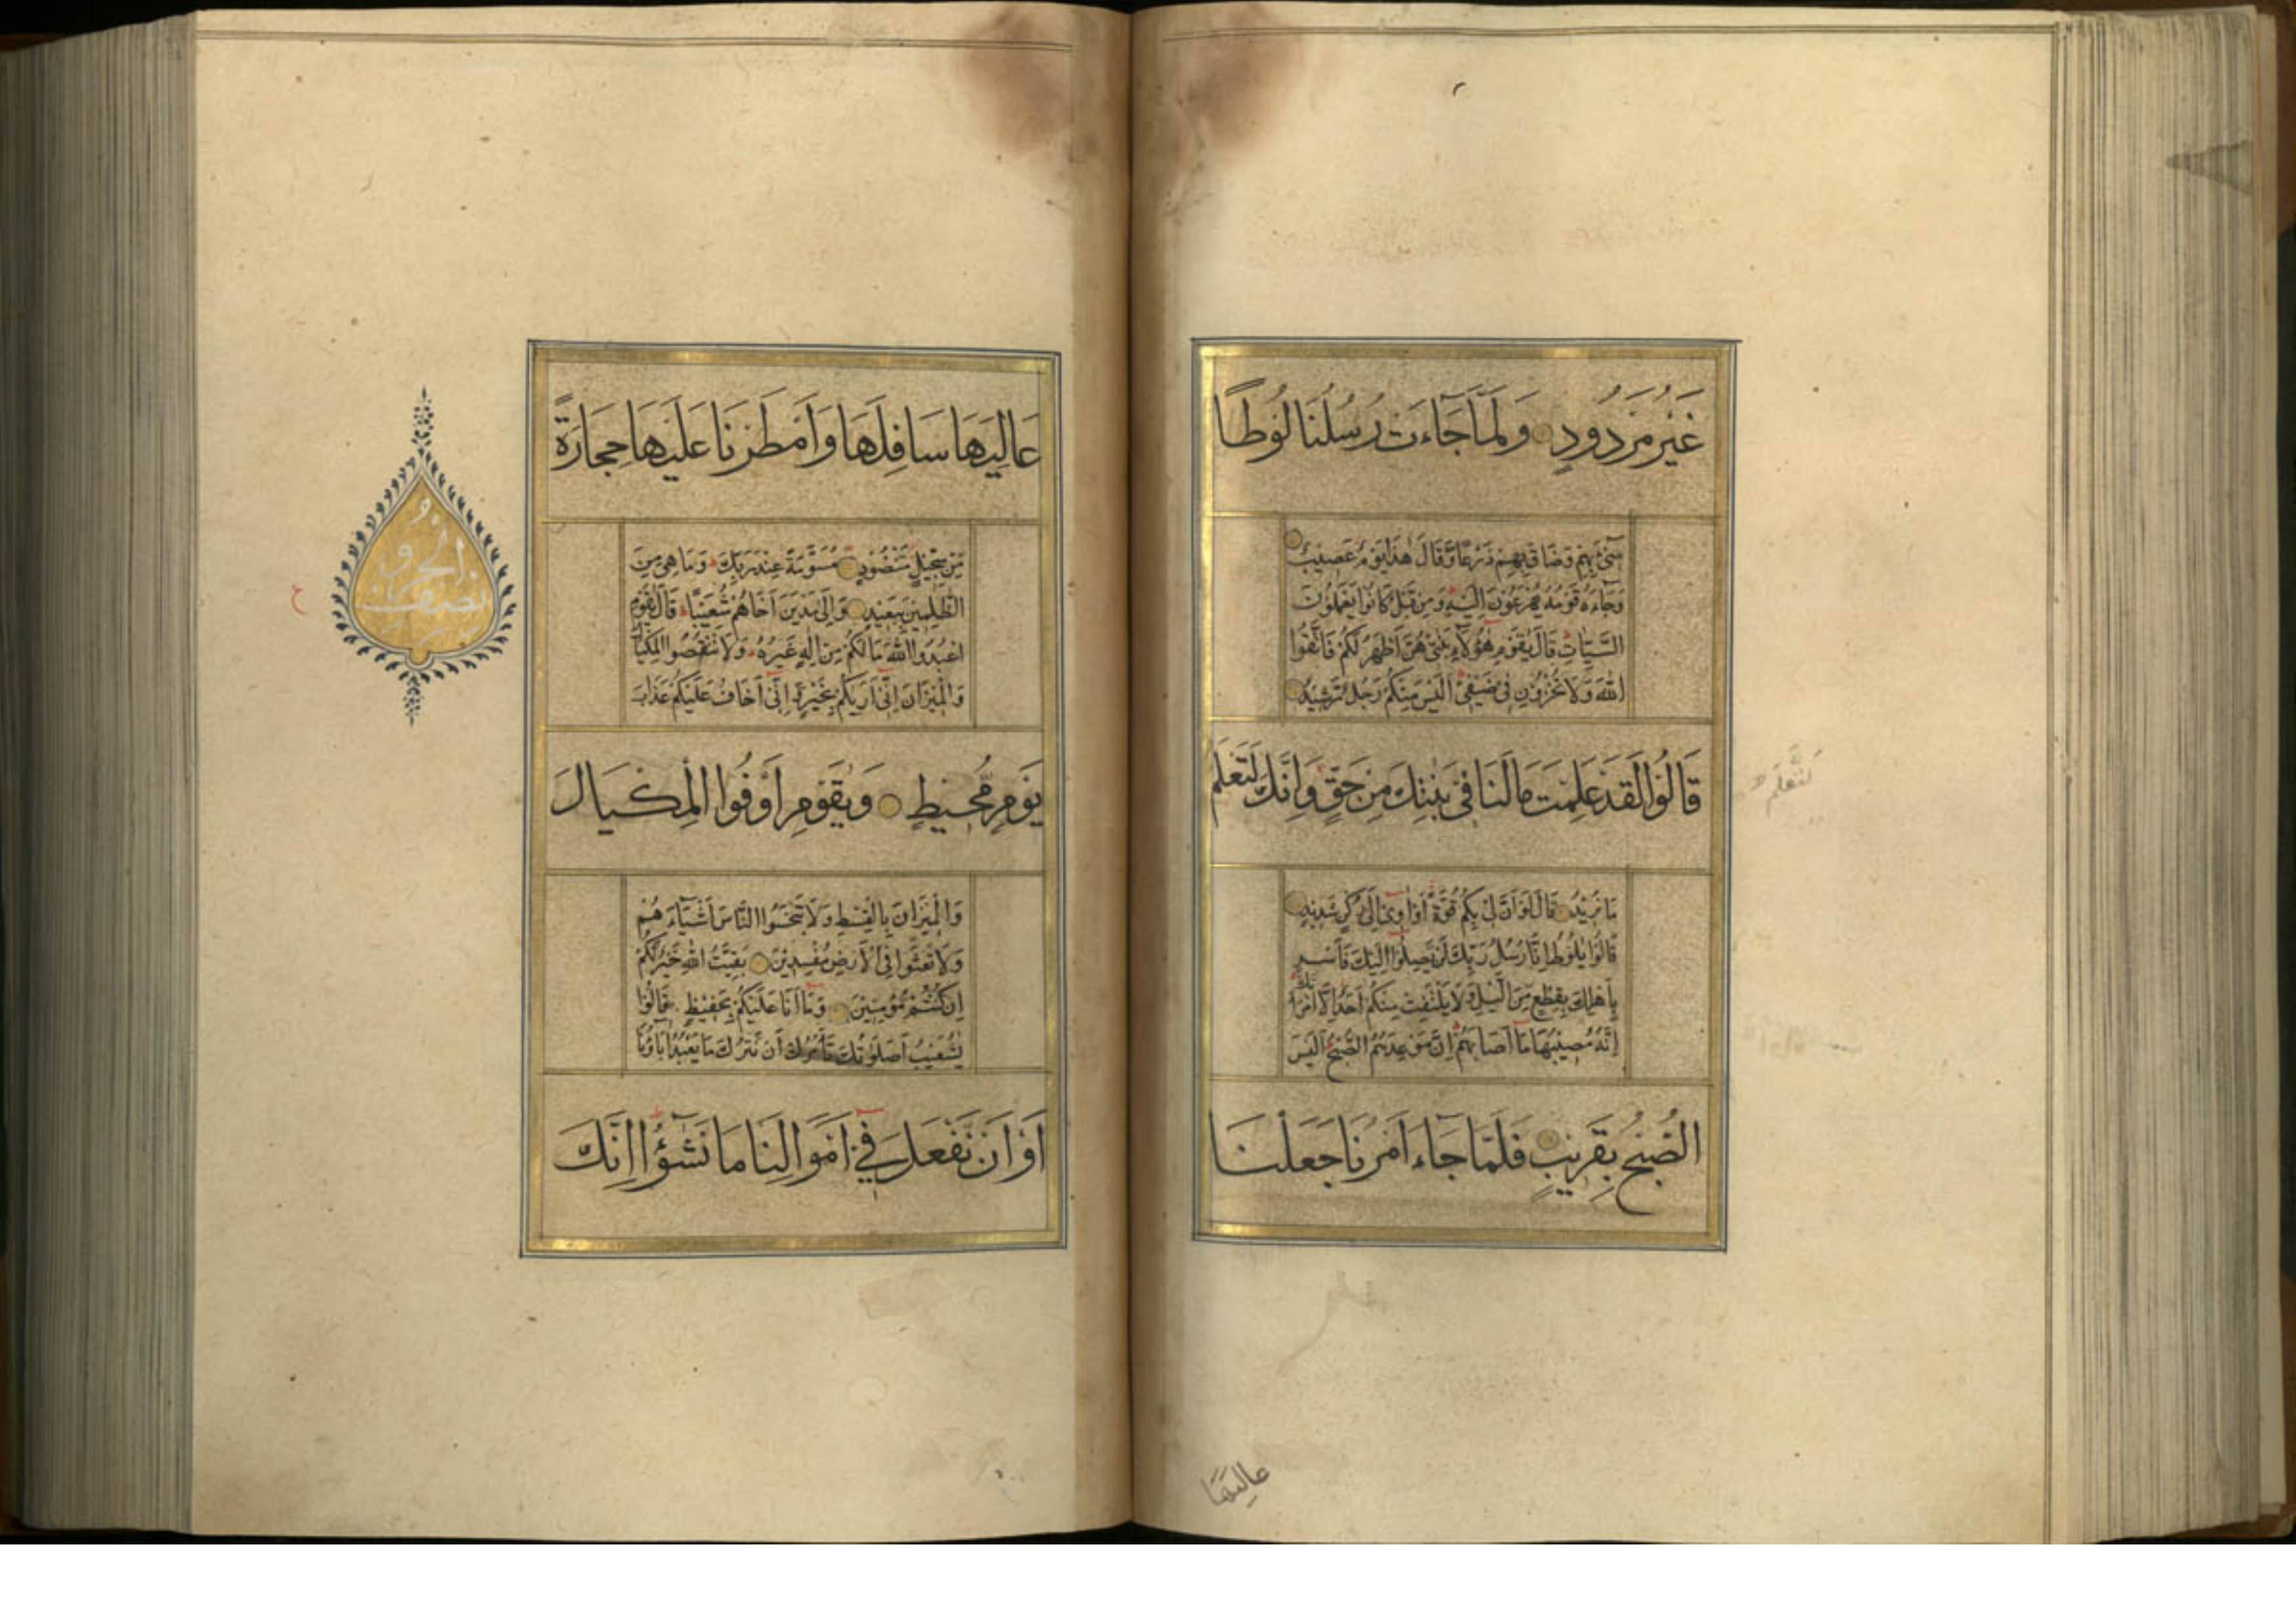 غَيْرُ مَرْدُودٍ وَلَمَّا جَآءَتْ رُسُلُنَا لُوطًا
سِىٓءَ بِهِمْ وَضَاقَ بِهِمْ ذَرْعًا وَقَالَ هٰذَا يَوْمٌ عَصِيبٌ
وَجَآءَهُ قَوْمُهُ يُهْرَعُونَ اِلَيْهِ وَمِنْ قَبْلُ كَانُوا يَعْمَلُونَ
السَّيِّاٰتِ قَالَ يٰقَوْمِ هٰؤُلَآءِ بَنٰتِى هُنَّ اَطْهَرُ لَكُمْ فَاتَّقُوا
اللّٰهَ وَلَا تُخْزُونِ فِى ضَيْفِىٓ اَلَيْسَ مِنْكُمْ رَجُلٌ رَّشِيدٌ
قَالُوا لَقَدْ عَلِمْتَ مَا لَنَا فِى بَنٰتِكَ مِنْ حَقٍّ وَاِنَّكَ لَتَعْلَمُ
لَتَعْلَمُ
مَا نُرِيْدُ قَالَ لَوْ اَنَّ لِى بِكُمْ قُوَّةً اَوْ اٰوِىٓ اِلٰى رُكْنٍ شَدِيْدٍ
قَالُوا يٰلُوطُ اِنَّا رُسُلُ رَبِّكَ لَنْ يَصِلُوٓا اِلَيْكَ فَاَسْرِ
بِاَهْلِكَ بِقِطْعٍ مِّنَ الَّيْلِ وَلَا يَلْتَفِتْ مِنْكُمْ اَحَدٌ اِلَّا امْرَاَتَكَ
اِنَّهُ مُصِيْبُهَا مَآ اَصَابَهُمْ اِنَّ مَوْعِدَهُمُ الصُّبْحُ اَلَيْسَ
الصُّبْحُ بِقَرِيْبٍ فَلَمَّا جَآءَ اَمْرُنَا جَعَلْنَا
عَالِيَهَا
عَالِيَهَا سَافِلَهَا وَاَمْطَرْنَا عَلَيْهَا حِجَارَةً
مِّنْ سِجِّيْلٍ مَّنْضُوْدٍ مُسَوَّمَةً عِنْدَ رَبِّكَ وَمَا هِىَ مِنَ
الظّٰلِمِيْنَ بِبَعِيْدٍ وَاِلٰى مَدْيَنَ اَخَاهُمْ شُعَيْبًا قَالَ يٰقَوْمِ
اعْبُدُوا اللّٰهَ مَا لَكُمْ مِنْ اِلٰهٍ غَيْرُهُ وَلَا تَنْقُصُوا الْمِكْيَالَ
وَالْمِيْزَانَ اِنِّىٓ اَرٰيكُمْ بِخَيْرٍ وَاِنِّىٓ اَخَافُ عَلَيْكُمْ عَذَابَ
يَوْمٍ مُّحِيْطٍ وَيٰقَوْمِ اَوْفُوا الْمِكْيَالَ
وَالْمِيْزَانَ بِالْقِسْطِ وَلَا تَبْخَسُوا النَّاسَ اَشْيَآءَهُمْ
وَلَا تَعْثَوْا فِى الْاَرْضِ مُفْسِدِيْنَ بَقِيَّتُ اللّٰهِ خَيْرٌ لَكُمْ
اِنْ كُنْتُمْ مُؤْمِنِيْنَ وَمَآ اَنَا عَلَيْكُمْ بِحَفِيْظٍ قَالُوْا
يٰشُعَيْبُ اَصَلٰوتُكَ تَاْمُرُكَ اَنْ نَتْرُكَ مَا يَعْبُدُ اٰبَآؤُنَآ
اَوْ اَنْ نَّفْعَلَ فِىٓ اَمْوَالِنَا مَا نَشٰٓؤُا اِنَّكَ
نصف الحزب